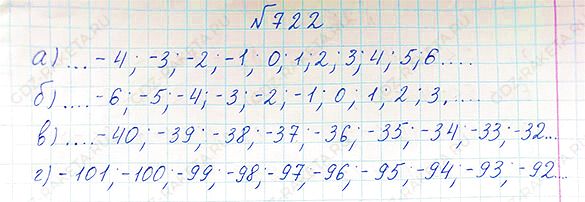 №722
а) ... -4; -3; -2; -1; 0; 1; 2; 3; 4; 5; 6....
б) ....-6; -5; -4; -3; -2; -1; 0; 1; 2; 3,....
в) ....-40; -39; -38; -37; -36; -35; -34; -33; -32...
г) -101; -100; -99; -98; -97; -96; -95; -94; -93; -92...